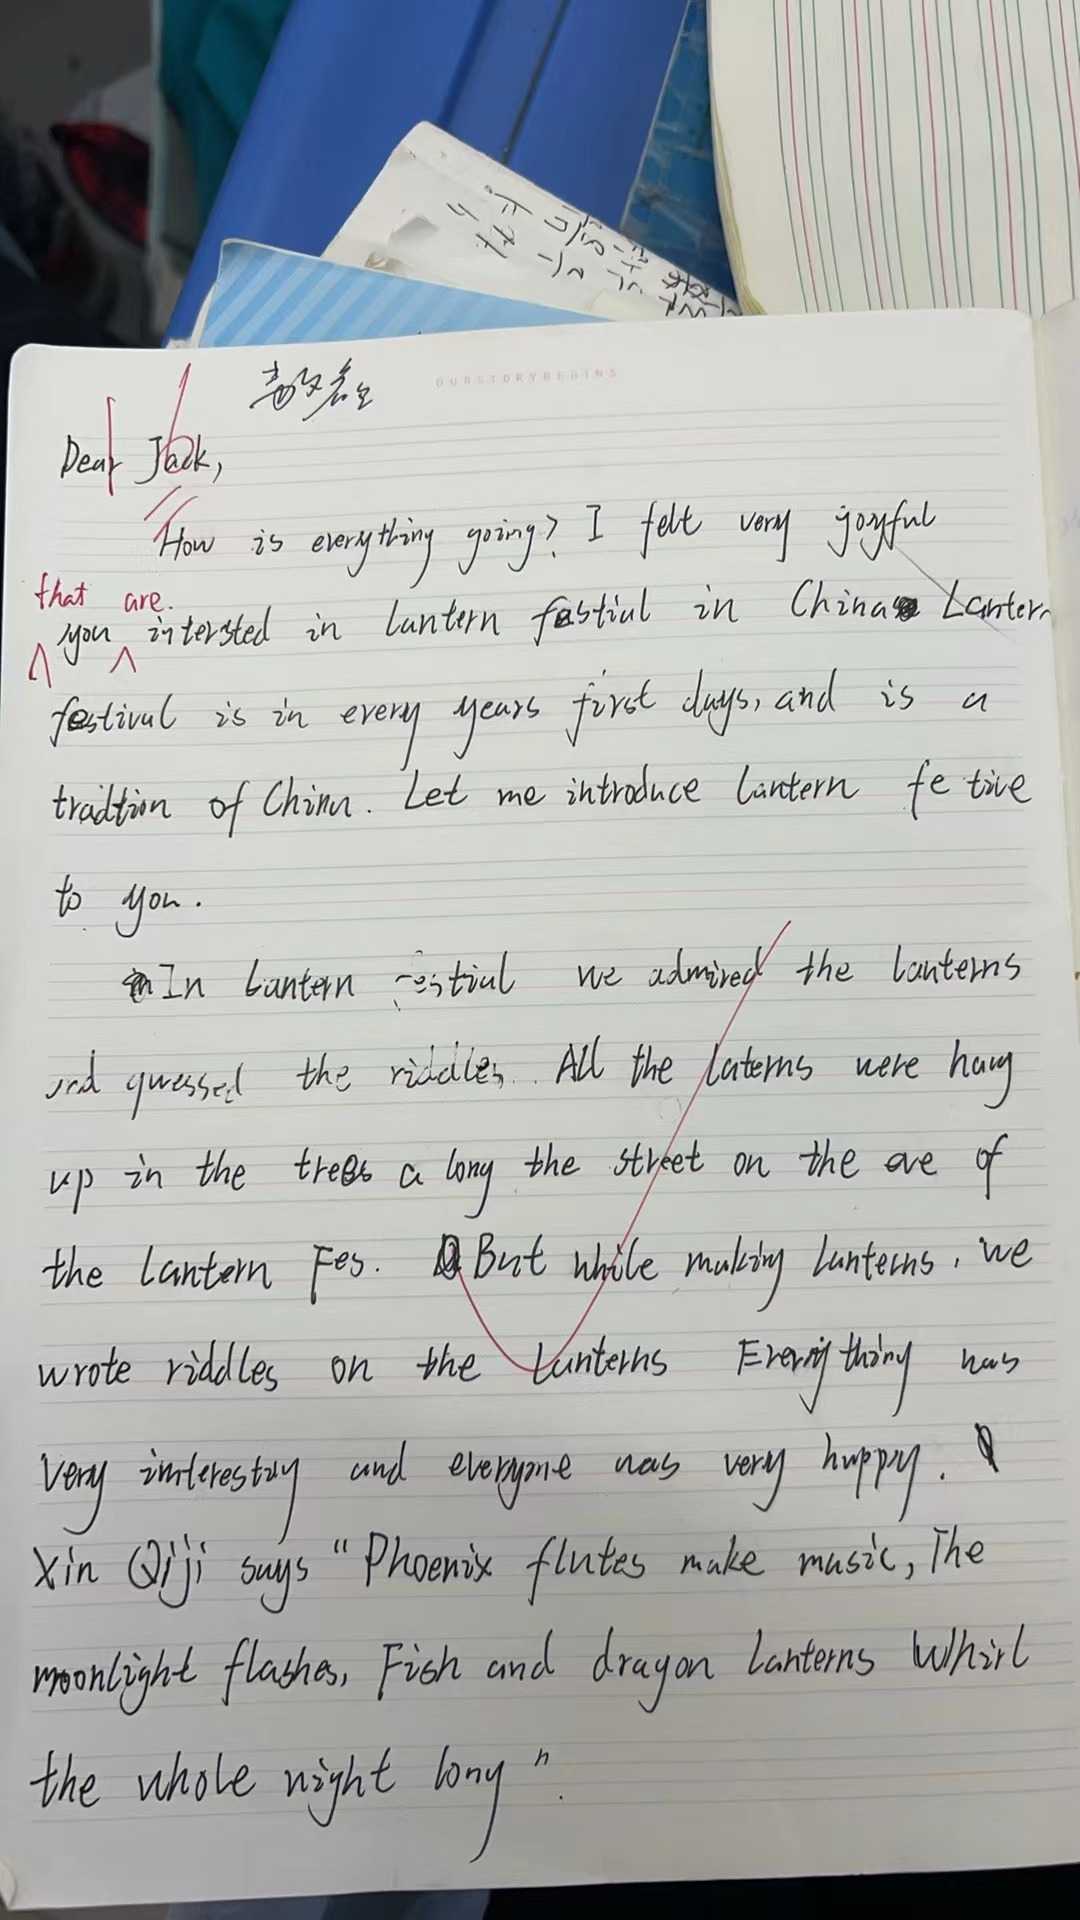 OURSTORYBEGINS
Dear Jack,
How is everything going? I felt very joyful
that are.
you intersted in lantern festiul in China Lantern
festival is in every years first days, and is a
tradtion of China. Let me introduce lantern fe tive
to you.
In Lantern estiul we admired the lanterns
and guessed the riddles. All the laterns were hang
up in the trees a long the street on the eve of
the lantern Fes. But while making lanterns, we
wrote riddles on the lanterns Everything was
very interesting and everyone was very happy.
Xin Qiji says "Phoenix flutes make music, The
moonlight flashes, Fish and dragon lanterns Whirl
the whole night long".